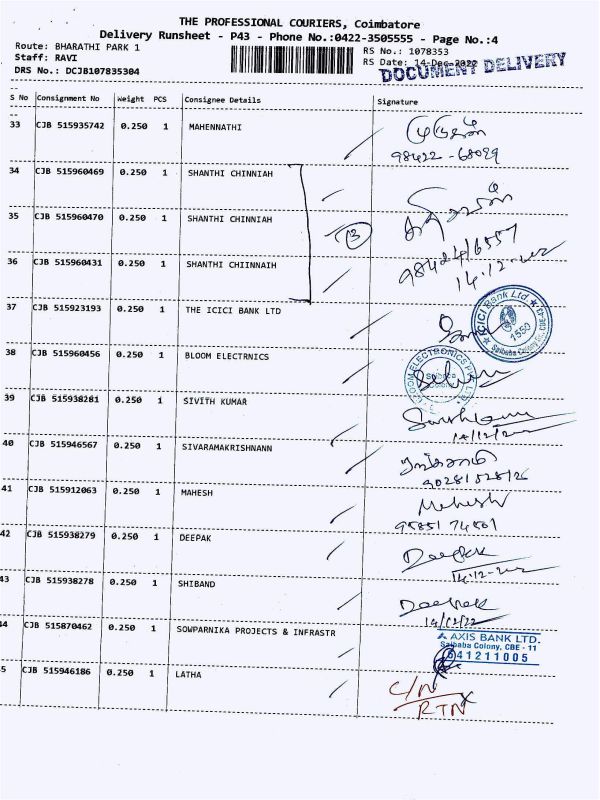 THE PROFESSIONAL COURIERS, Coimbatore
Delivery Runsheet - P43 - Phone No.:0422-3505555 - Page No.:4
Route: BHARATHI PARK 1
RS No.: 1078353
Staff: RAVI
RS Date: 14-Dec-2022
DRS No.: DCJB107835304
DOCUMENT DELIVERY
S No Consignment No Weight PCS Consignee Details Signature
33 CJB 515935742 0.250 1 MAHENNATHI
98422-68099
34 CJB 515960469 0.250 1 SHANTHI CHINNIAH
35 CJB 515960470 0.250 1 SHANTHI CHINNIAH
3
9842416557
36 CJB 515960431 0.250 1 SHANTHI CHIINNAIH
14.12.22
37 CJB 515923193 0.250 1 THE ICICI BANK LTD
ICICI Bank Ltd
1550
38 CJB 515960456 0.250 1 BLOOM ELECTRNICS
39 CJB 515938281 0.250 1 SIVITH KUMAR
40 CJB 515946567 0.250 1 SIVARAMAKRISHNANN
41 CJB 515912063 0.250 1 MAHESH
Mahesh
42 CJB 515938279 0.250 1 DEEPAK
Deepak
43 CJB 515938278 0.250 1 SHIBAND
Deepak
14/12/22
44 CJB 515870462 0.250 1 SOWPARNIKA PROJECTS & INFRASTR
AXIS BANK LTD.
Saibaba Colony, CBE - 11
641211005
45 CJB 515946186 0.250 1 LATHA
C/N
RTN